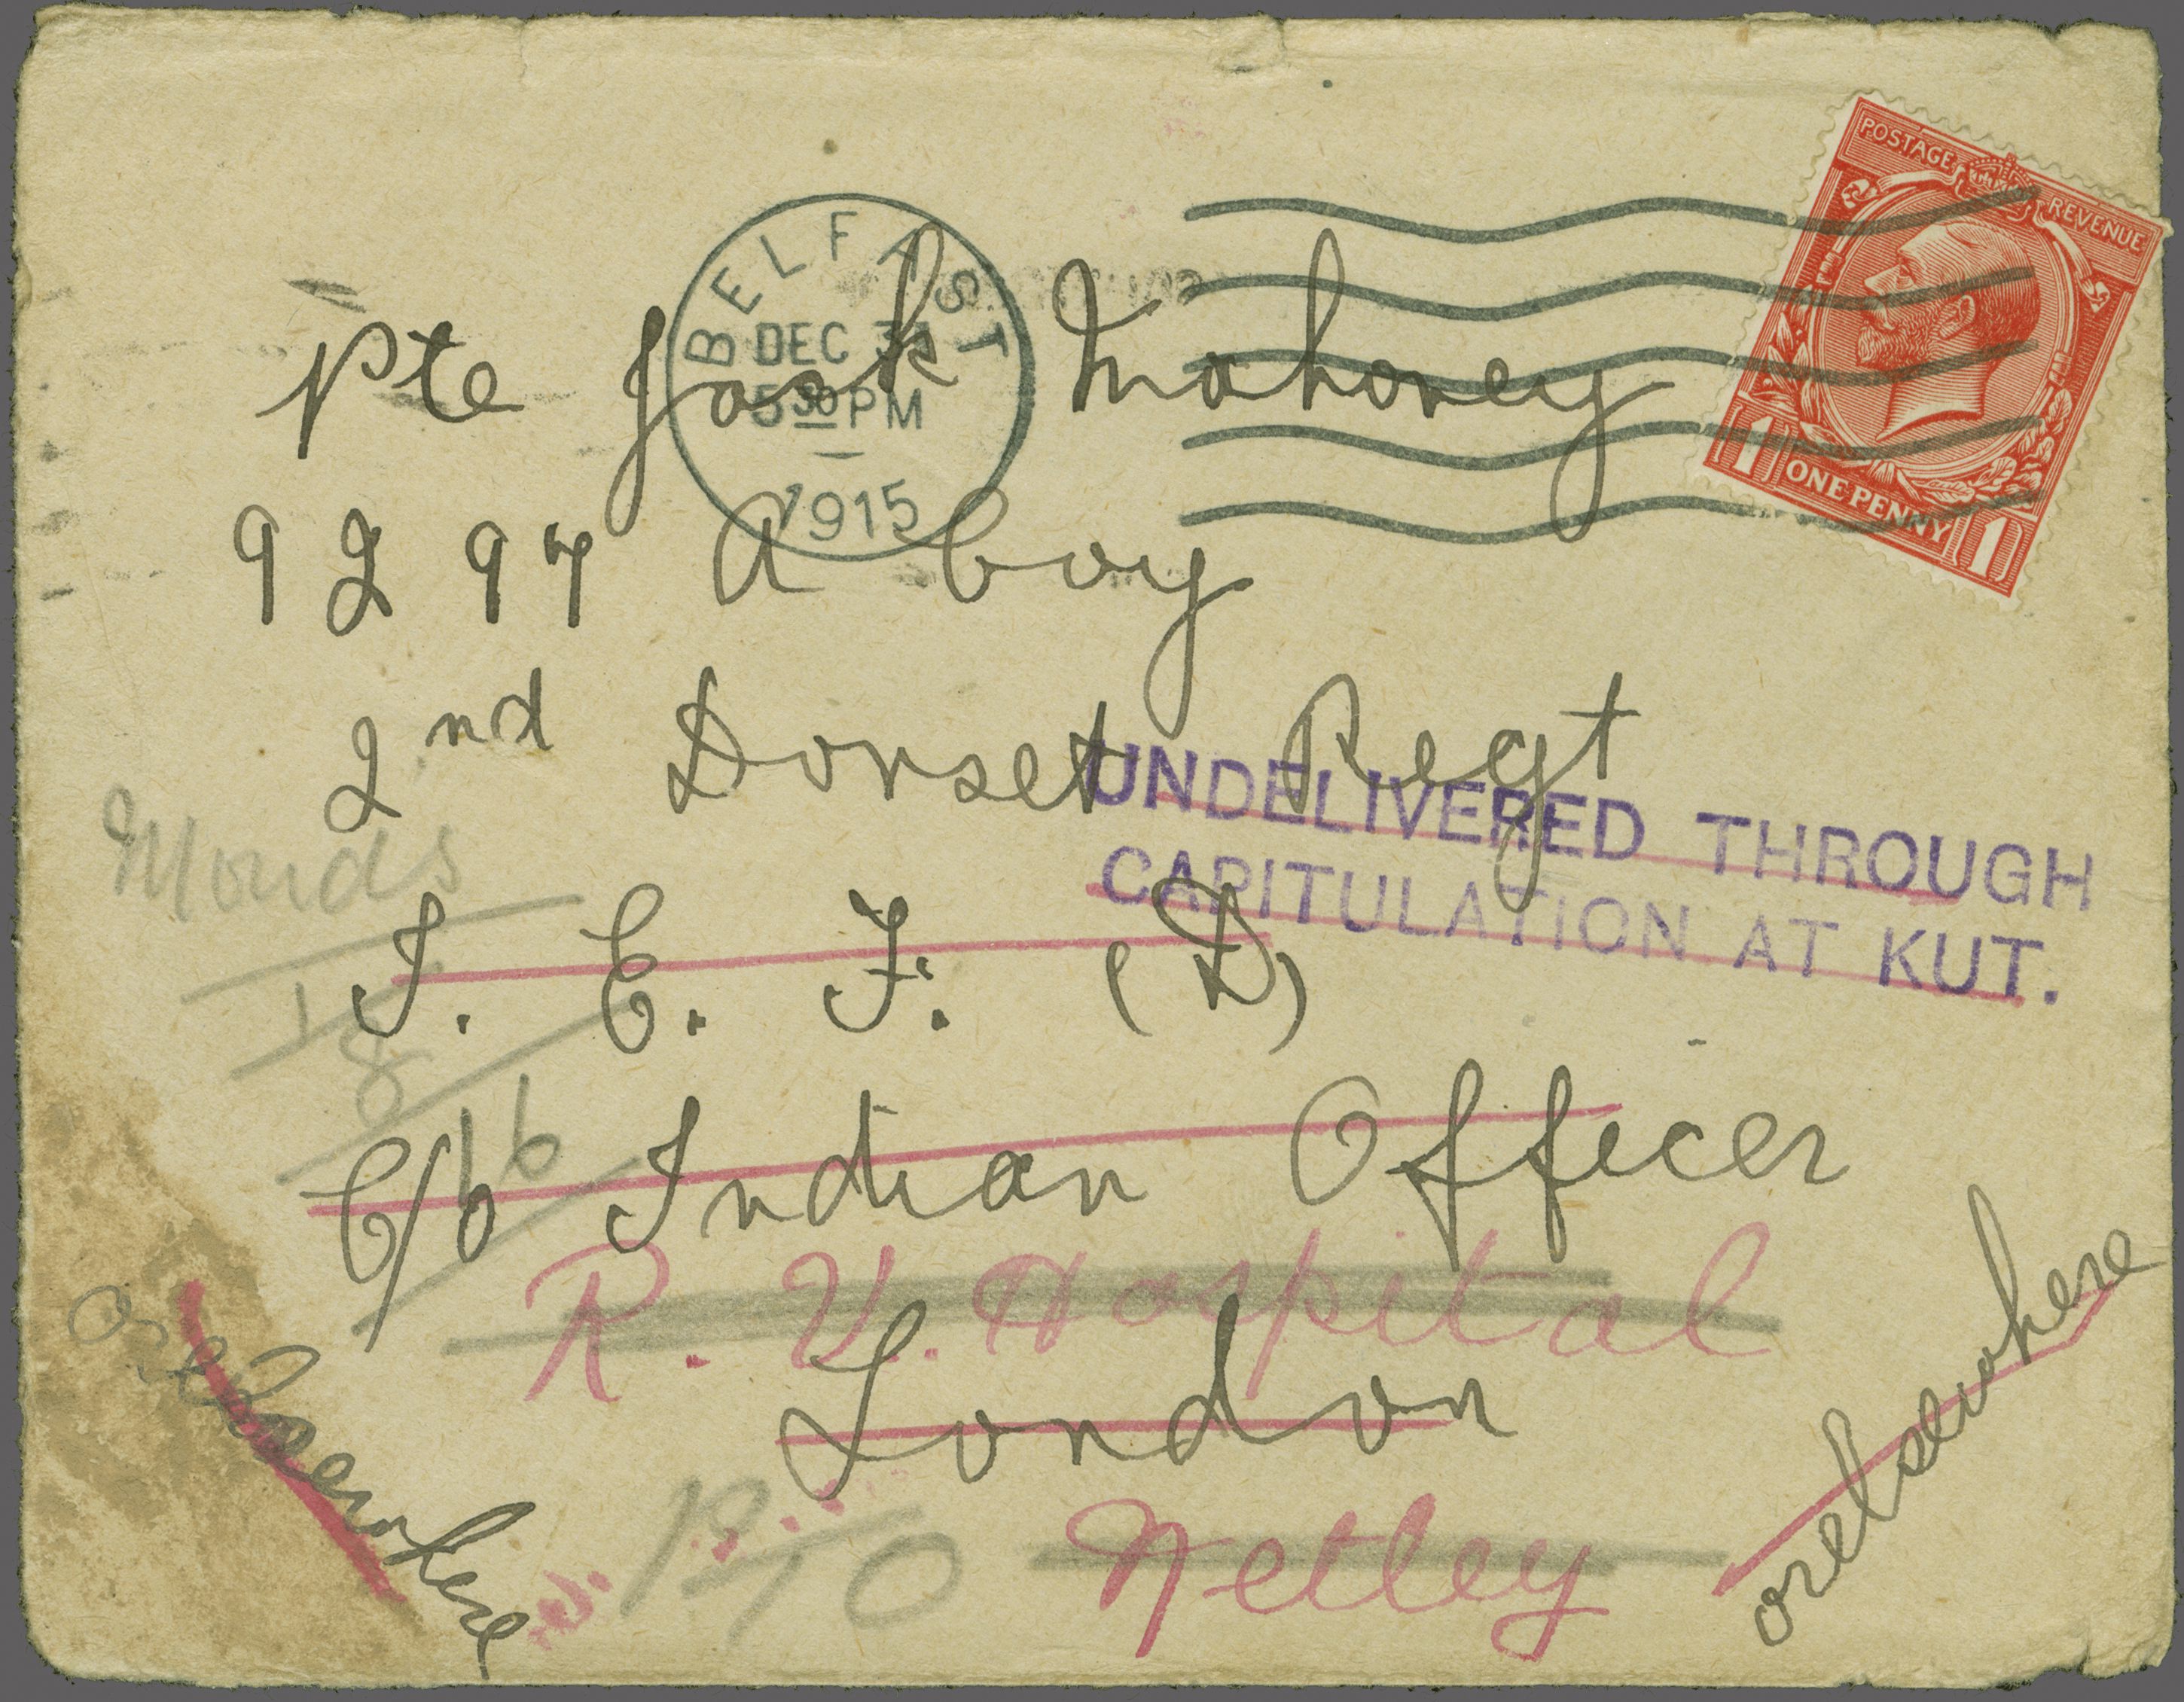 POSTAGE REVENUE
ONE PENNY
1 1
BELFAST
DEC 31
5 30 PM
1915
Pte Jack Mahoney
9297 A Coy
2nd Dorset Regt
UNDELIVERED THROUGH
CAPITULATION AT KUT.
I. E. F. (D)
18
16
C/o Indian Officer
R. V. Hospital
London
Netley
or elsewhere
orelsewhere